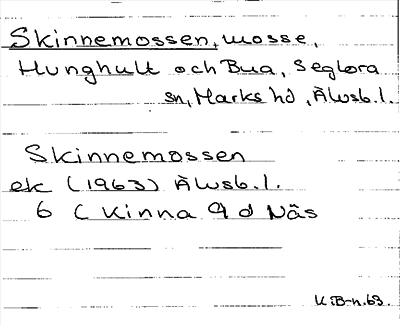 Skinnemossen, mosse,
Hunghult och Bua, Seglora
sn, Marks hd, Älvsb.l.
Skinnemossen
ek (1963) Älvsb.l.
6 C Kinna 9 d Näs
K:B-n.63.